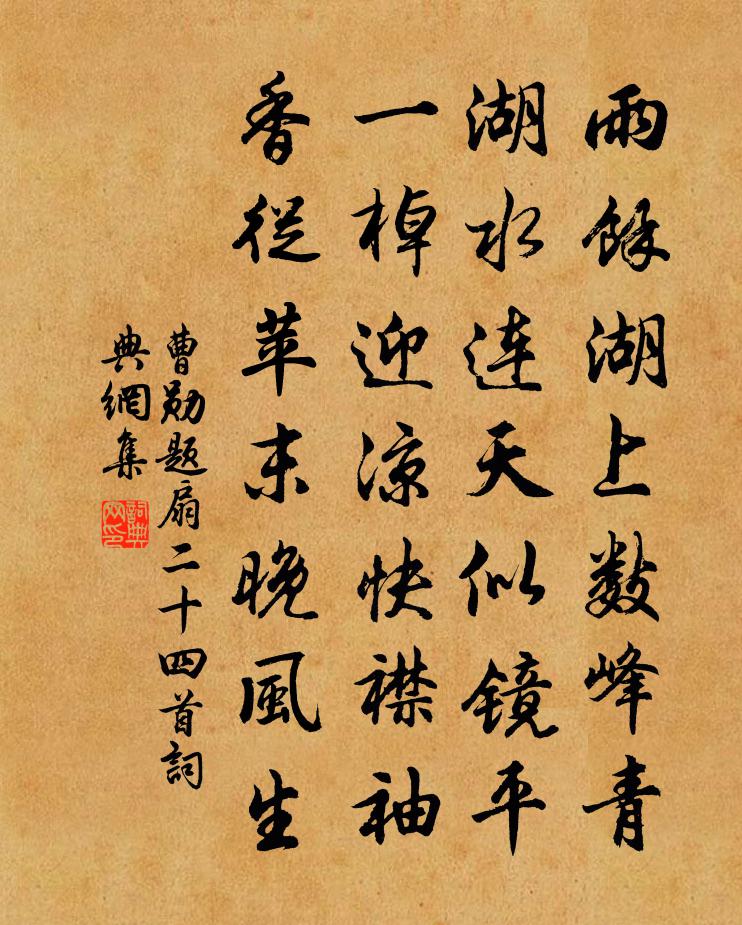 雨餘湖上數峰青
湖水連天似鏡平
一棹迎涼快襟袖
香從苹末晚風生
曹勛題扇二十四首詞
典網集
詞典網印